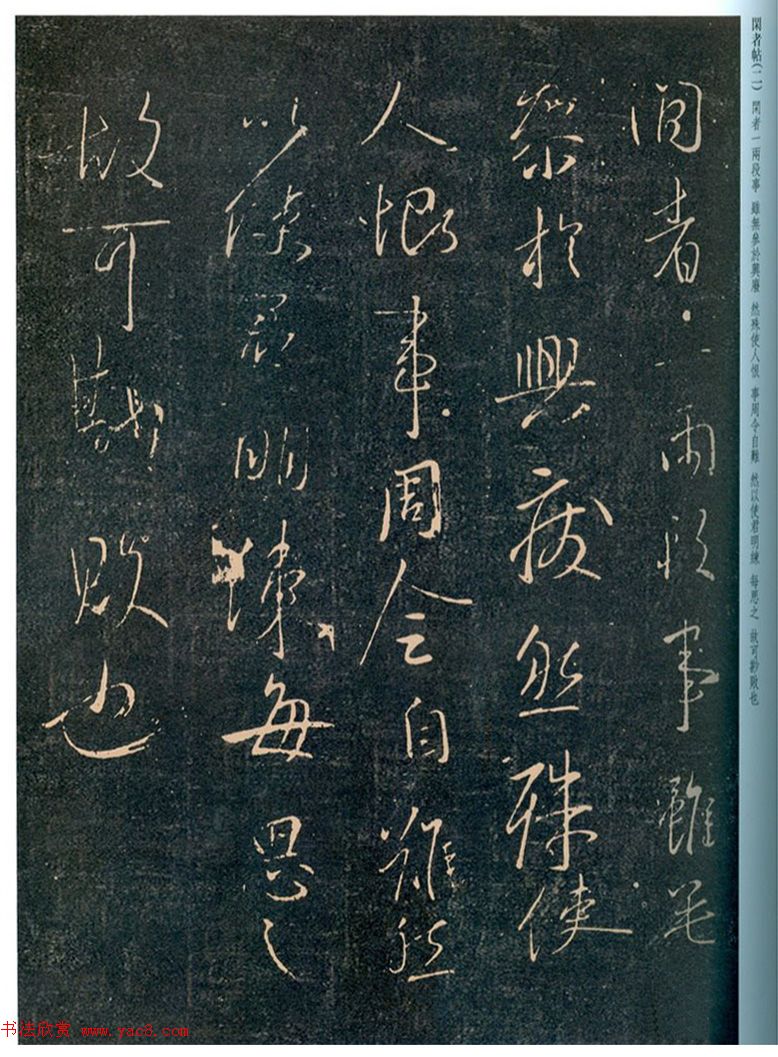 閑者帖(二) 閑者一兩段事 雖無參於興廢 然殊使人恨 事周令自難 然以使君明練 每思之 故可尠敗也
閑者一兩段事雖無
參於興廢然殊使
人恨事周令自難然
以使君明練每思之
故可尠敗也
书法欣赏 www.yac8.com